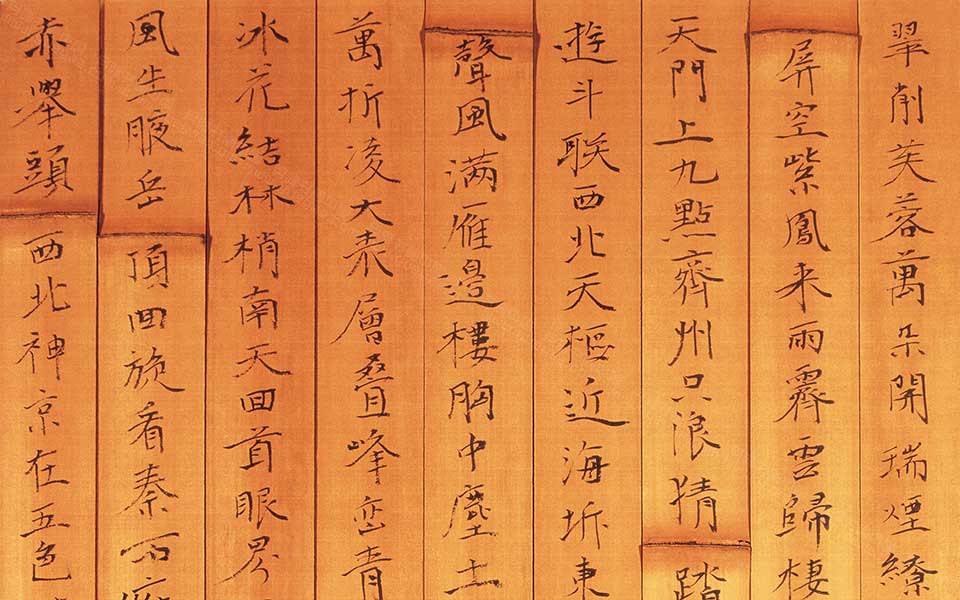 翠削芙蓉萬朵開瑞煙繚
屏空紫鳳来雨霽雲歸棲
天門上九點齊州只浪猜踏
遊斗联西北天樞近海坼東
聲風满雁邊樓胸中塵土
萬折凌大表層叠峰峦青
冰花結林梢南天回首眼界
風生腋岳頂回旋看秦石
赤舉頭西北神京在五色